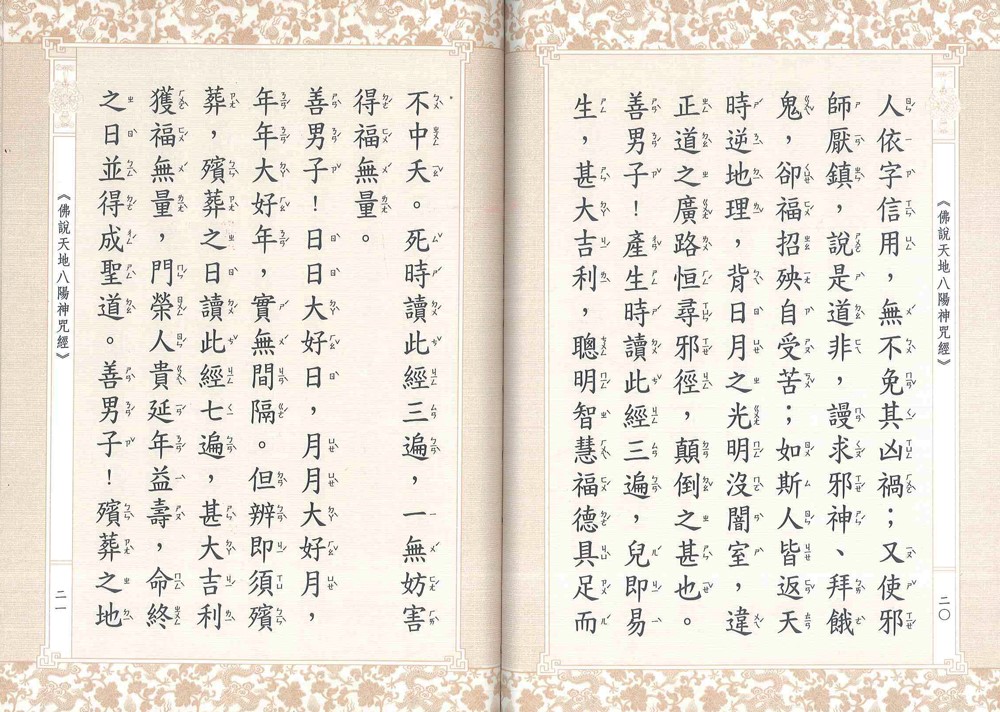 《佛說天地八陽神咒經》
二〇
人依字信用，無不免其凶禍；又使邪
師厭鎮，說是道非，謾求邪神、拜餓
鬼，卻福招殃自受苦；如斯人皆返天
時逆地理，背日月之光明沒闇室，違
正道之廣路恒尋邪徑，顛倒之甚也。
善男子！產生時讀此經三遍，兒即易
生，甚大吉利，聰明智慧福德具足而
不中夭。死時讀此經三遍，一無妨害
得福無量。
善男子！日日大好日，月月大好月，
年年大好年，實無間隔。但辨即須殯
葬，殯葬之日讀此經七遍，甚大吉利
獲福無量，門榮人貴延年益壽，命終
之日並得成聖道。善男子！殯葬之地
《佛說天地八陽神咒經》
二一